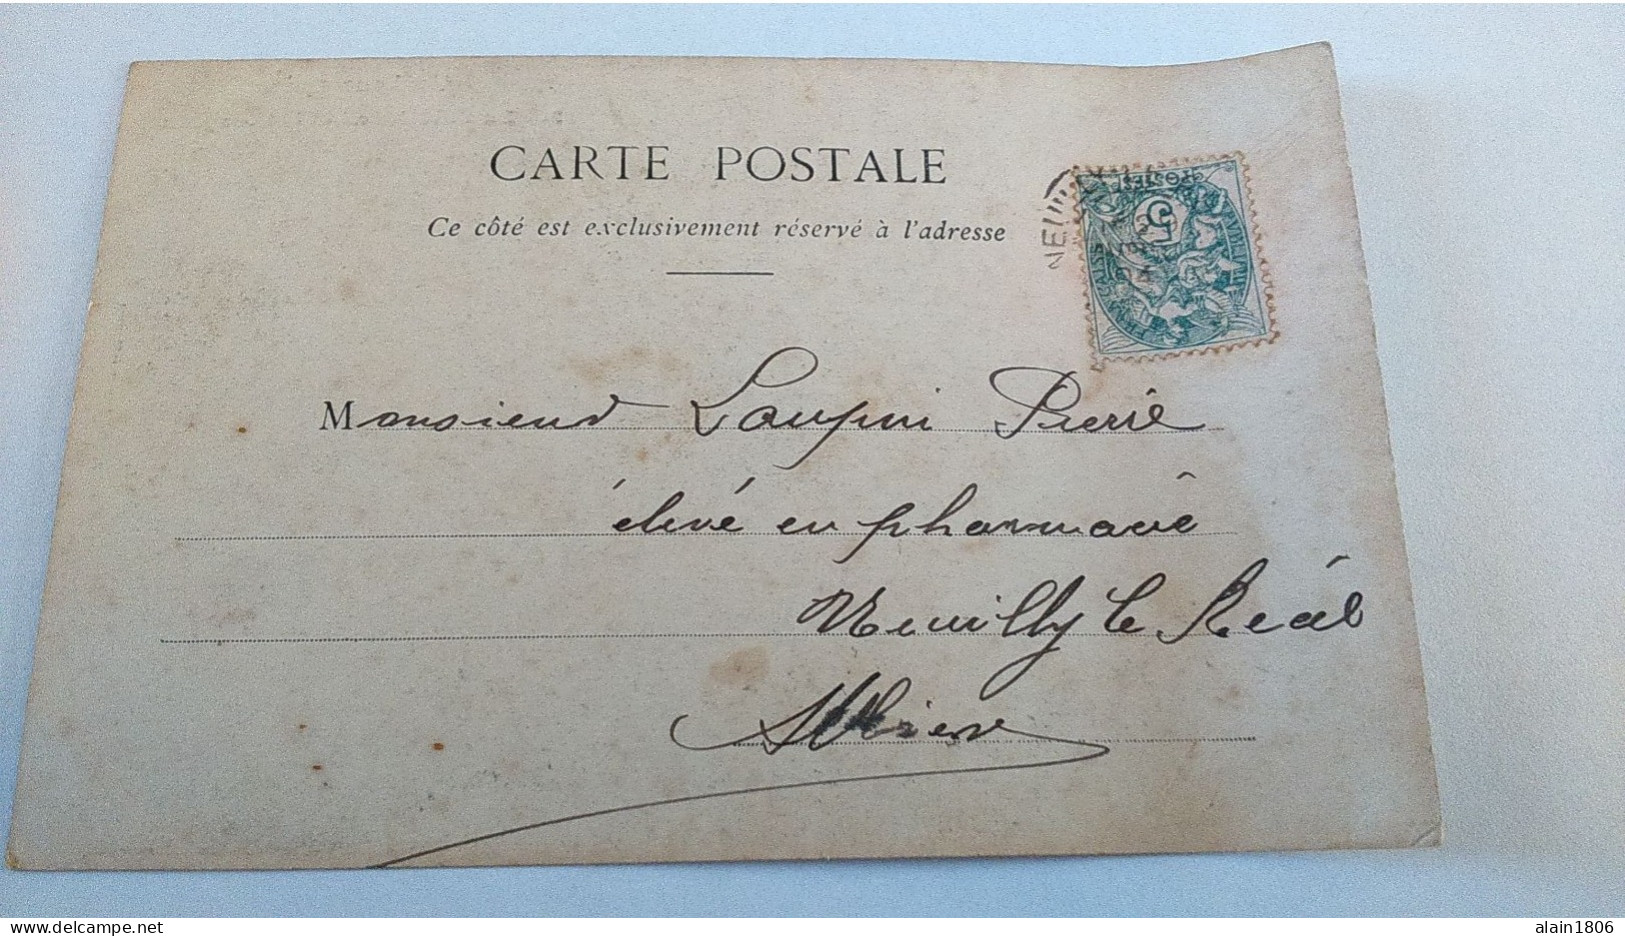 CARTE POSTALE
Ce côté est exclusivement réservé à l'adresse
NEUI
POSTES
5
Monsieur Loupini Pierre
élevé en pharmacie
Neuilly le Réal
Allier
delcampe.net
alain1806